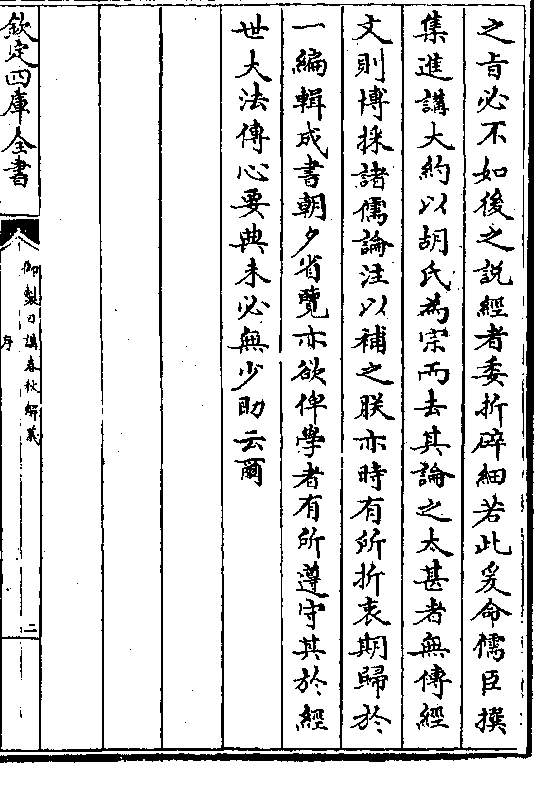 之旨必不如後之説經者委折碎細若此爰命儒臣撰
集進講大約以胡氏為宗而去其論之太甚者無傳經
文則博採諸儒論注以補之朕亦時有所折衷期歸於
一編輯成書朝夕省覽亦欲俾學者有所遵守其於經
世大法傳心要典未必無少助云爾
欽定四庫全書
御製日講春秋解義
序
二